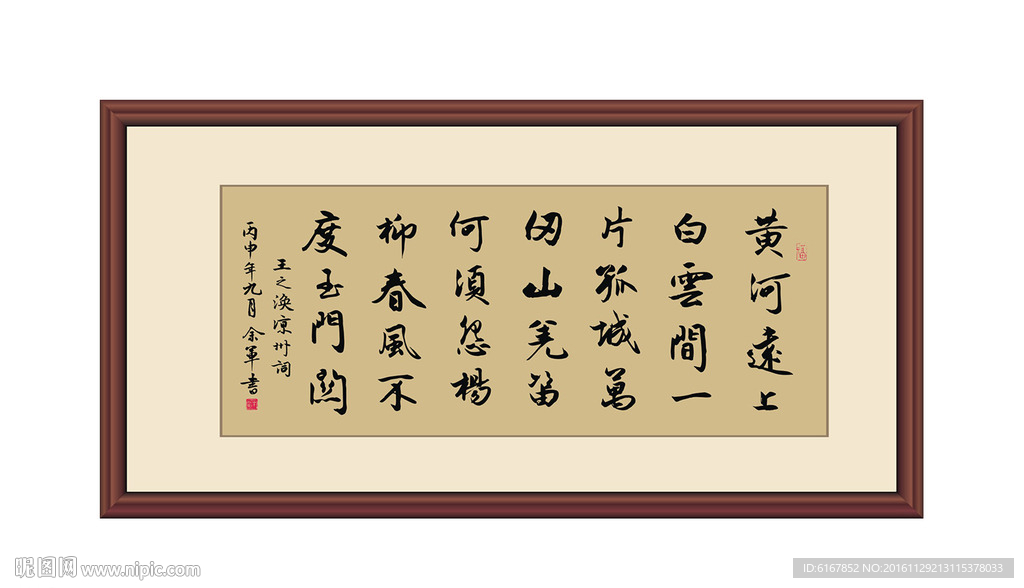 黃河遠上
白雲間一
片孤城萬
仞山羌笛
何須怨楊
柳春風不
度玉門關
王之渙涼州詞
丙申年九月余軍書
昵图网 www.nipic.com
ID:6167852 NO:20161129213115378033